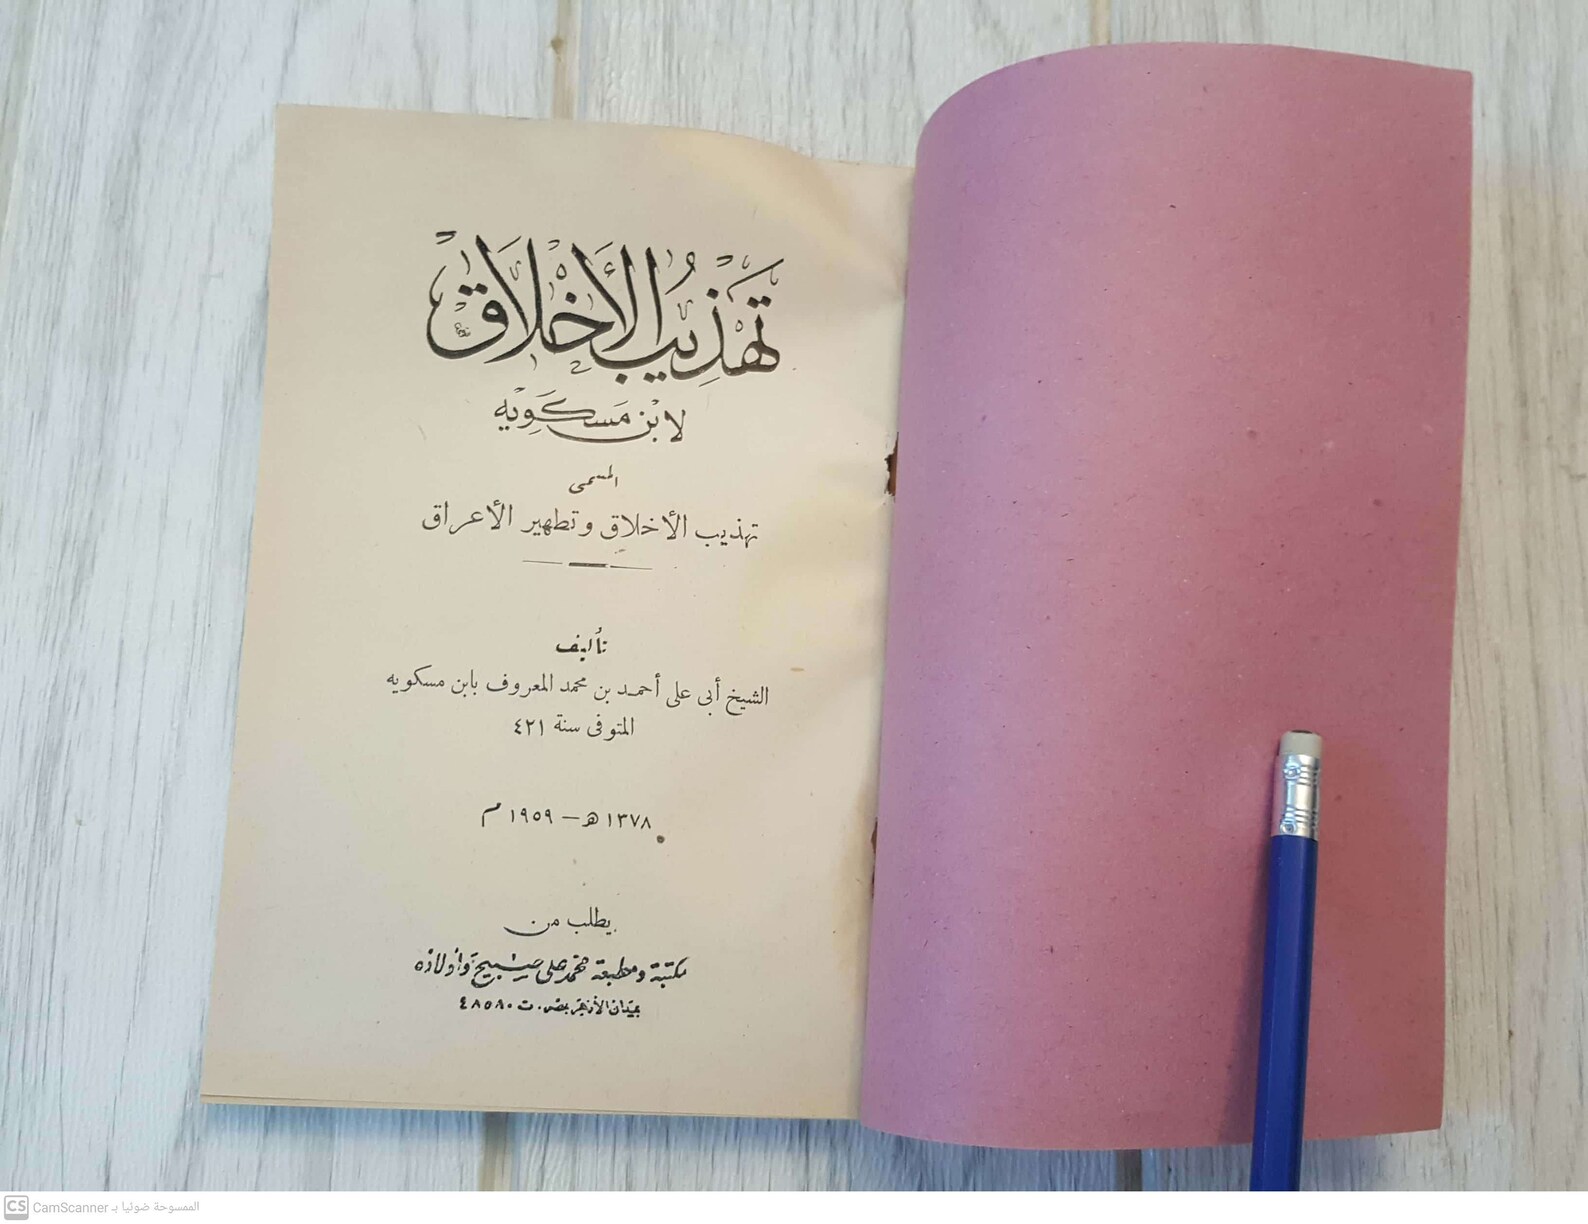 تهذيب الأخلاق
لابن مسكويه
المسمى
تهذيب الأخلاق وتطهير الأعراق
تأليف
الشيخ أبى على أحمد بن محمد المعروف بابن مسكويه
المتوفى سنة ٤٢١
١٣٧٨ هـ — ١٩٥٩ م
يطلب من
مكتبة ومطبعة محمد على صبيح وأولاده
بميدان الأزهر بمصر. ت ٤٨٥٨٠
CS CamScanner الممسوحة ضوئيا بـ